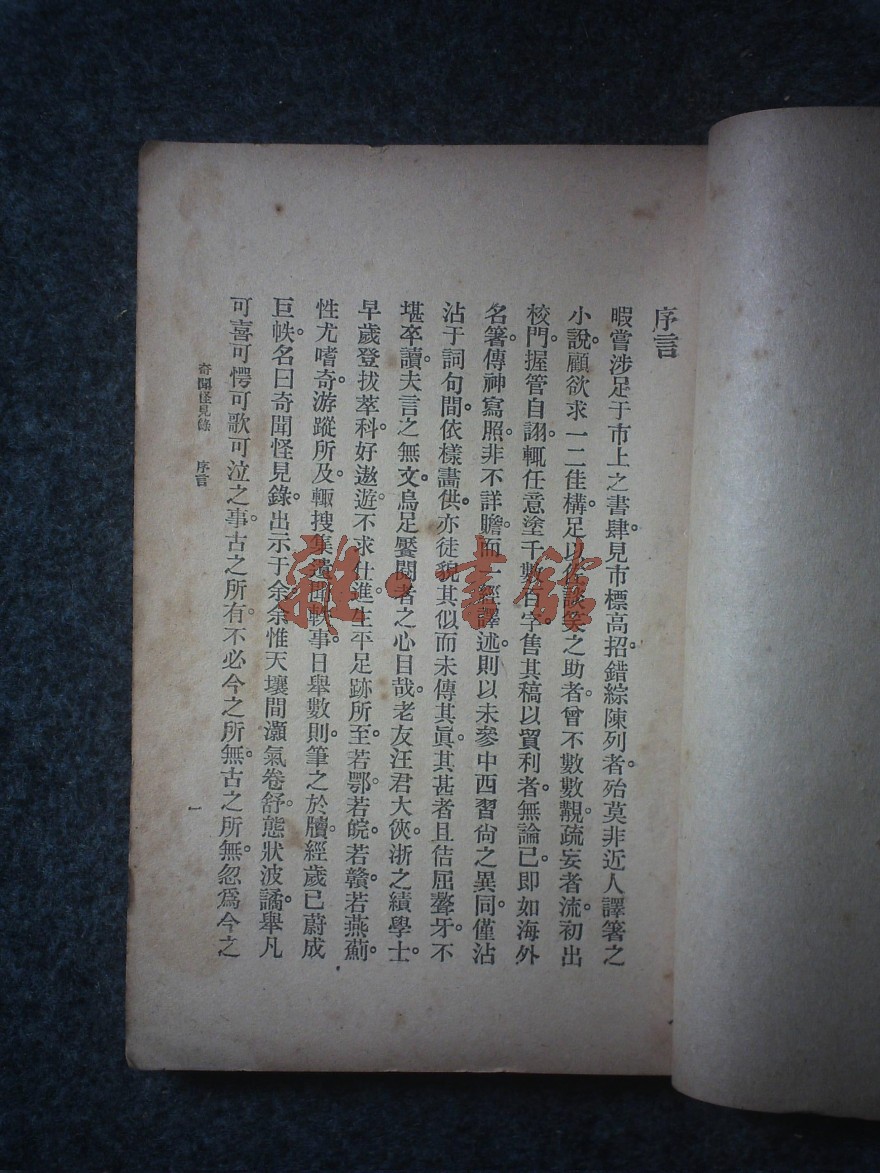 序言
暇嘗涉足于市上之書肆見市標高招錯綜陳列者殆莫非近人譯箸之
小說。顧欲求一二佳構。足以佐談笑之助者。曾不數數覯。疏妄者流。初出
校門。握管自詡。輒任意塗千數百字。售其稿以貿利者。無論已。即如海外
名箸。傳神寫照。非不詳贍。而一經譯述。則以未參中西習尙之異同。僅沾
沾于詞句間。依樣畫供。亦徒貌其似而未傳其眞。其甚者且佶屈聱牙。不
堪卒讀。夫言之無文。烏足饜閱者之心目哉。老友汪君大俠。浙之績學士。
早歲登拔萃科。好遨遊。不求仕進。生平足跡所至。若鄂若皖。若贛若燕薊。
性尤嗜奇。游蹤所及。輙搜集遺聞軼事。日舉數則。筆之於牘。經歲已蔚成
巨帙。名曰奇聞怪見錄。出示于余。余惟天壤間灝氣卷舒。態狀波譎。舉凡
可喜可愕可歌可泣之事。古之所有。不必今之所無。古之所無。忽爲今之
奇聞怪見錄 序言
一
雜·書館